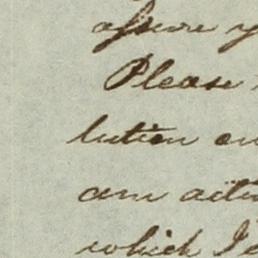 assure y
Please
lution on
am actin
which I e